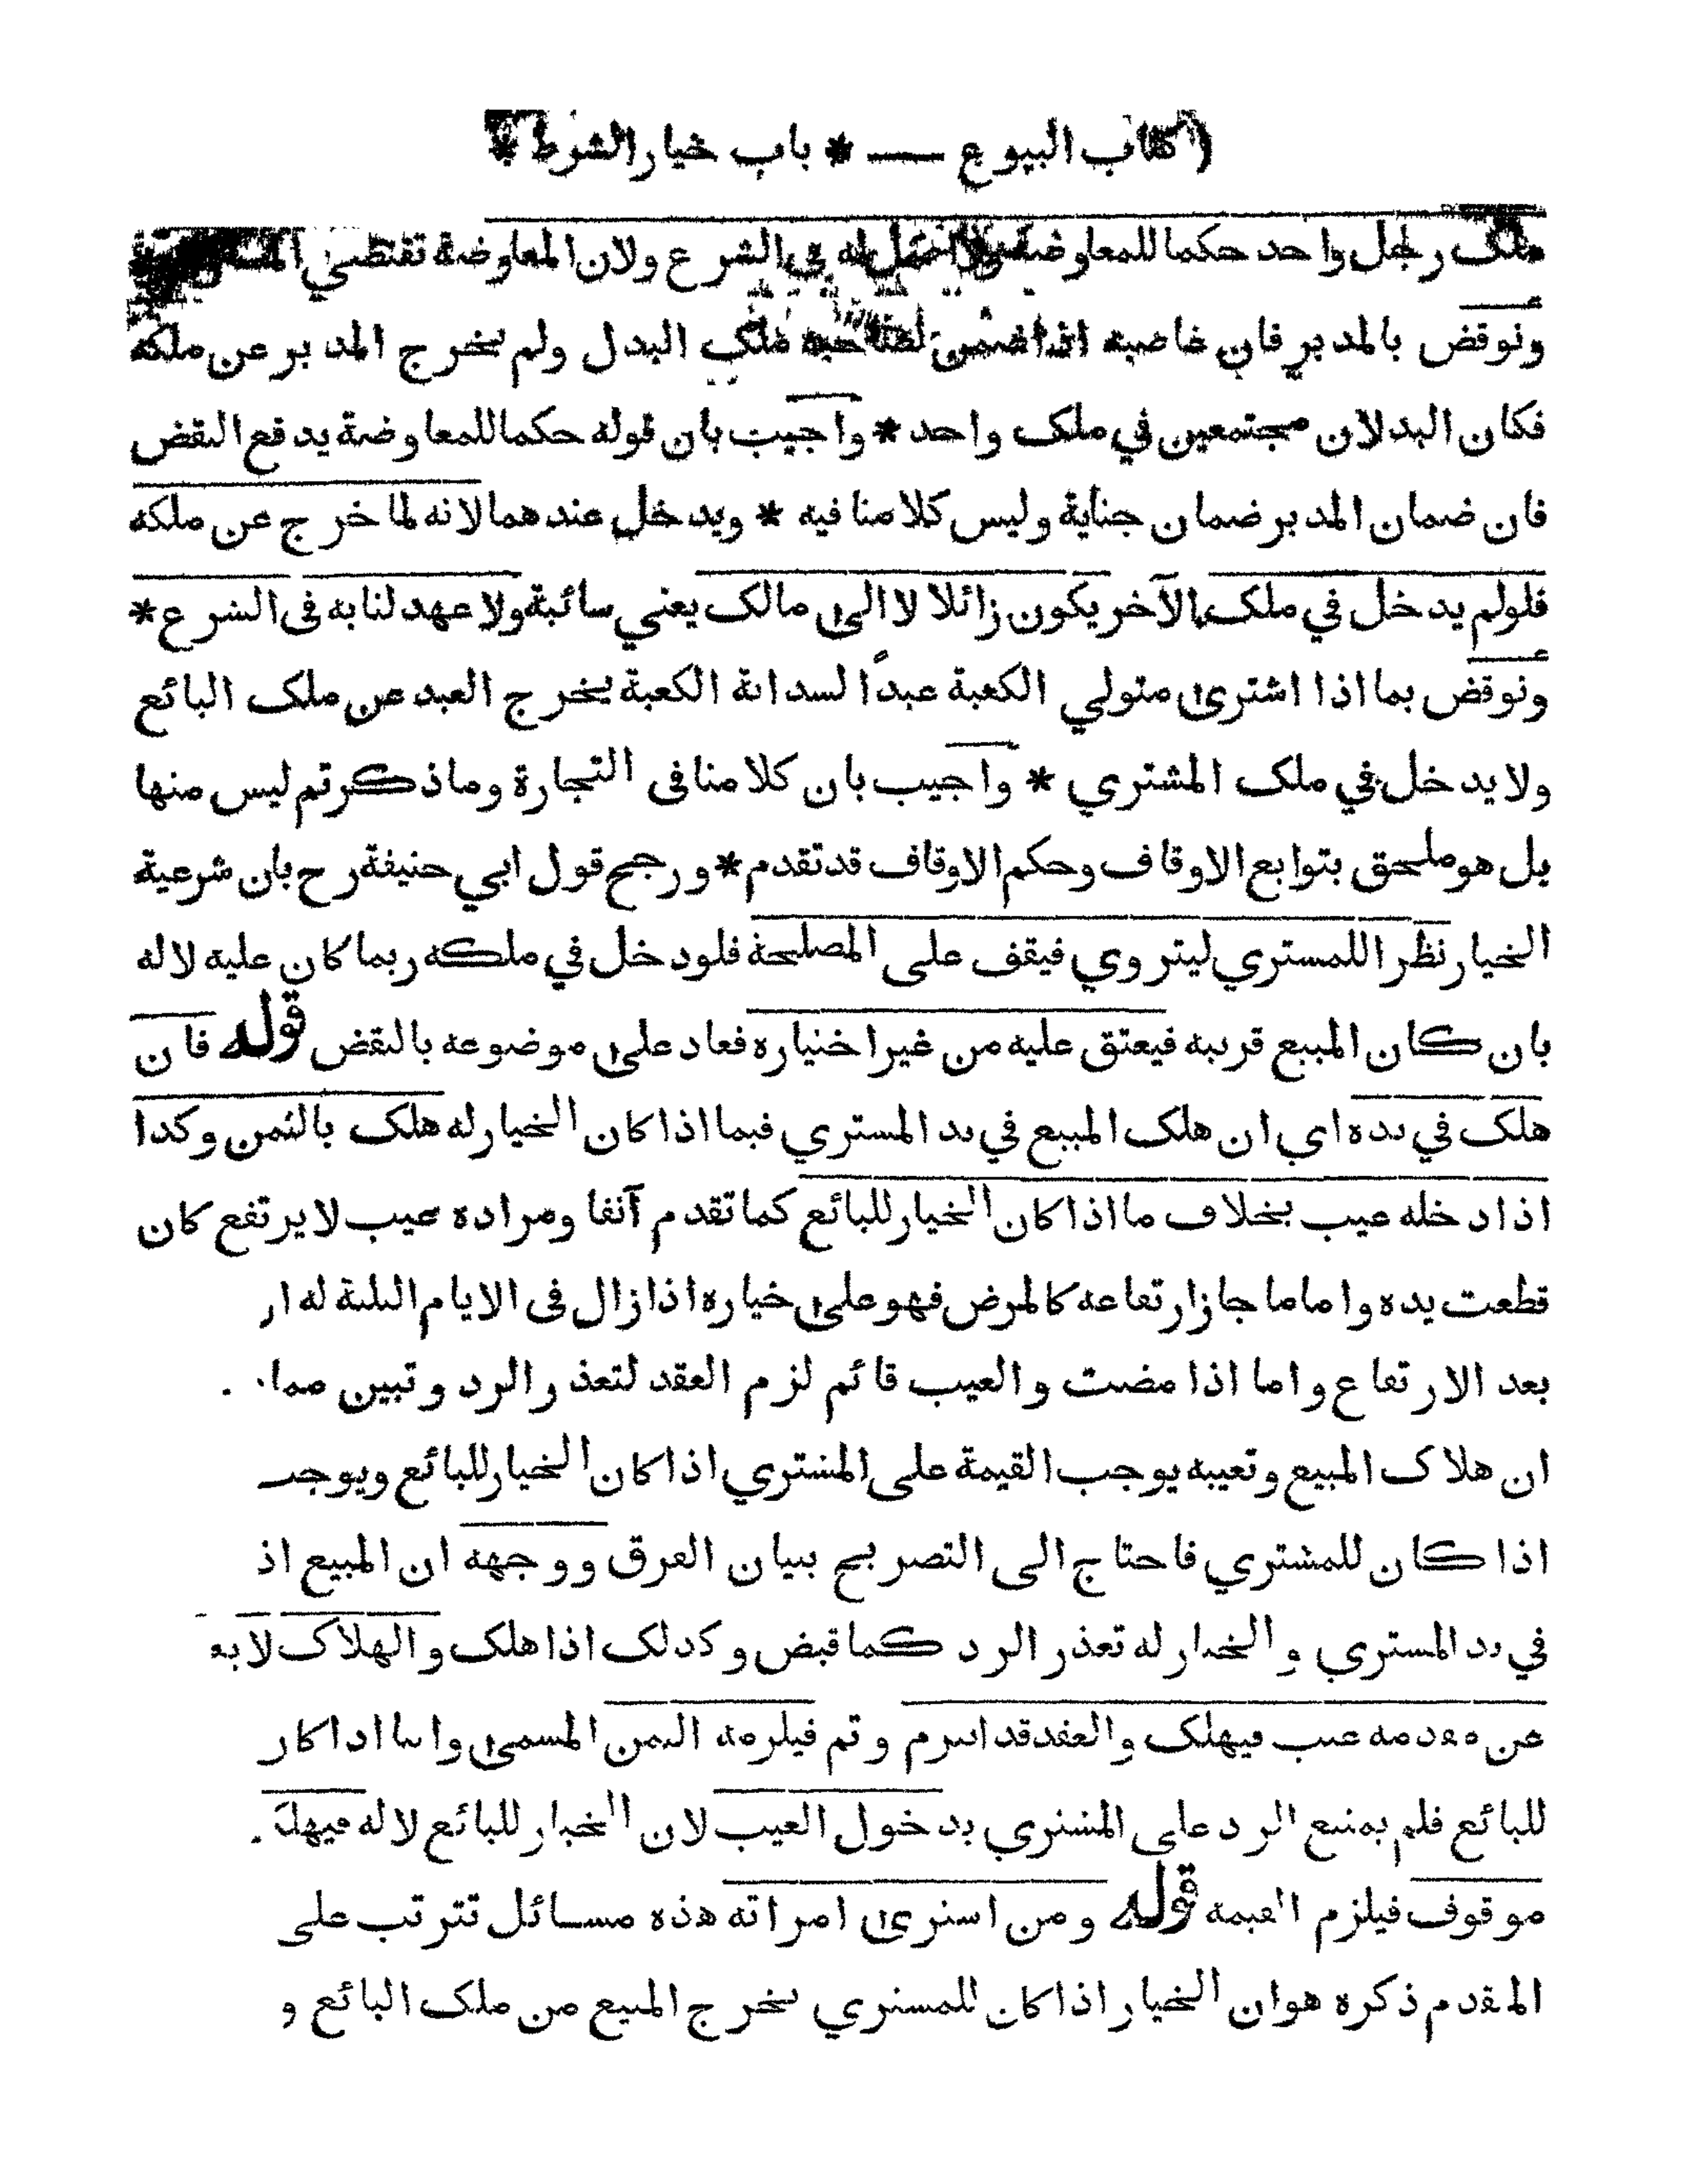 ( كتاب البيوع — * باب خيار الشرط *
ملك رجل واحد حكما للمعاوضة ولا اصل له في الشرع ولان المعاوضة تقتضي
ونوقض بالمدبر فان غاصبه اذا ضمن لصاحبه ملك البدل ولم يخرج المدبر عن ملكه
فكان البدلان مجتمعين في ملك واحد * واجيب بان قوله حكما للمعاوضة يدفع النقض
فان ضمان المدبر ضمان جناية وليس كلامنا فيه * ويدخل عندهما لانه لما خرج عن ملكه
فلولم يدخل في ملك الآخر يكون زائلا لا الى مالك يعني سائبة ولا عهد لنا به فى الشرع *
ونوقض بما اذا اشترى متولي الكعبة عبدًا لسدانة الكعبة يخرج العبد عن ملك البائع
ولا يدخل في ملك المشتري * واجيب بان كلامنا فى التجارة وما ذكرتم ليس منها
بل هو ملحق بتوابع الاوقاف وحكم الاوقاف قد تقدم * ورجح قول ابي حنيفة رح بان شرعية
الخيار نظرا للمشتري ليتروي فيقف على المصلحة فلو دخل في ملكه ربما كان عليه لا له
بان كان المبيع قريبه فيعتق عليه من غير اختياره فعاد على موضوعه بالنقض قوله فان
هلك في يده اي ان هلك المبيع في يد المشتري فيما اذا كان الخيار له هلك بالثمن وكذا
اذا دخله عيب بخلاف ما اذا كان الخيار للبائع كما تقدم آنفا ومراده عيب لا يرتفع كان
قطعت يده واما ما جاز ارتفاعه كالمرض فهو على خياره اذا زال فى الايام الثلثة له
بعد الارتفاع واما اذا مضت والعيب قائم لزم العقد لتعذر الرد وتبين
ان هلاك المبيع وتعيبه يوجب القيمة على المشتري اذا كان الخيار للبائع ويوجب
اذا كان للمشتري فاحتاج الى التصريح ببيان الفرق ووجهه ان المبيع
في يد المشتري والخيار له تعذر الرد كما قبض وكذلك اذا هلك والهلاك لا
عن مقدمة عيب فيهلك والعقد قد انبرم وتم فيلزمه الثمن المسمى واما اذا كان
للبائع فلم يمتنع الرد على المشتري بدخول العيب لان الخيار للبائع لا له فيهلك
موقوف فيلزم القيمة قوله ومن اشترى امراته هذه مسائل تترتب على
المقدم ذكره هو ان الخيار اذا كان للمشتري يخرج المبيع من ملك البائع و